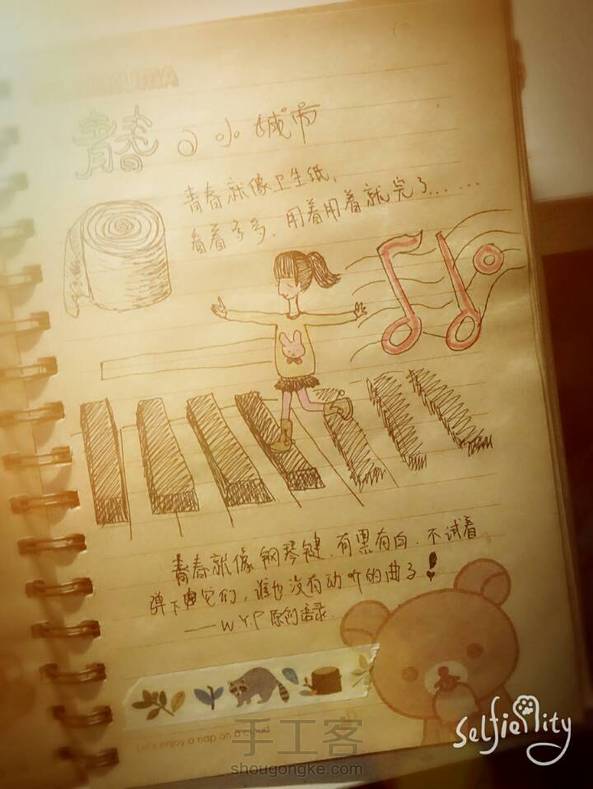 青春の小城市
青春就像卫生纸,
看着多多,用着用着就完了……
青春就像钢琴键,有黑有白,不试着
弹下它们,谁也没有动听的曲子!
——W.Y.P 原创语录
Let's enjoy a nap on a cloud
手工客
shougongke.com
selfiecity